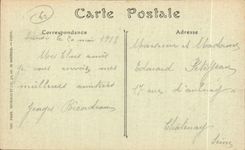 Carte Postale
Correspondance
Adresse
le 20 mai 1918
Mes Chers amis
je vous envoie mes
meilleures amitiés
Georges
Monsieur et Madame
Edouard Petitjean
17 rue d'aulnay
Châtenay
Seine